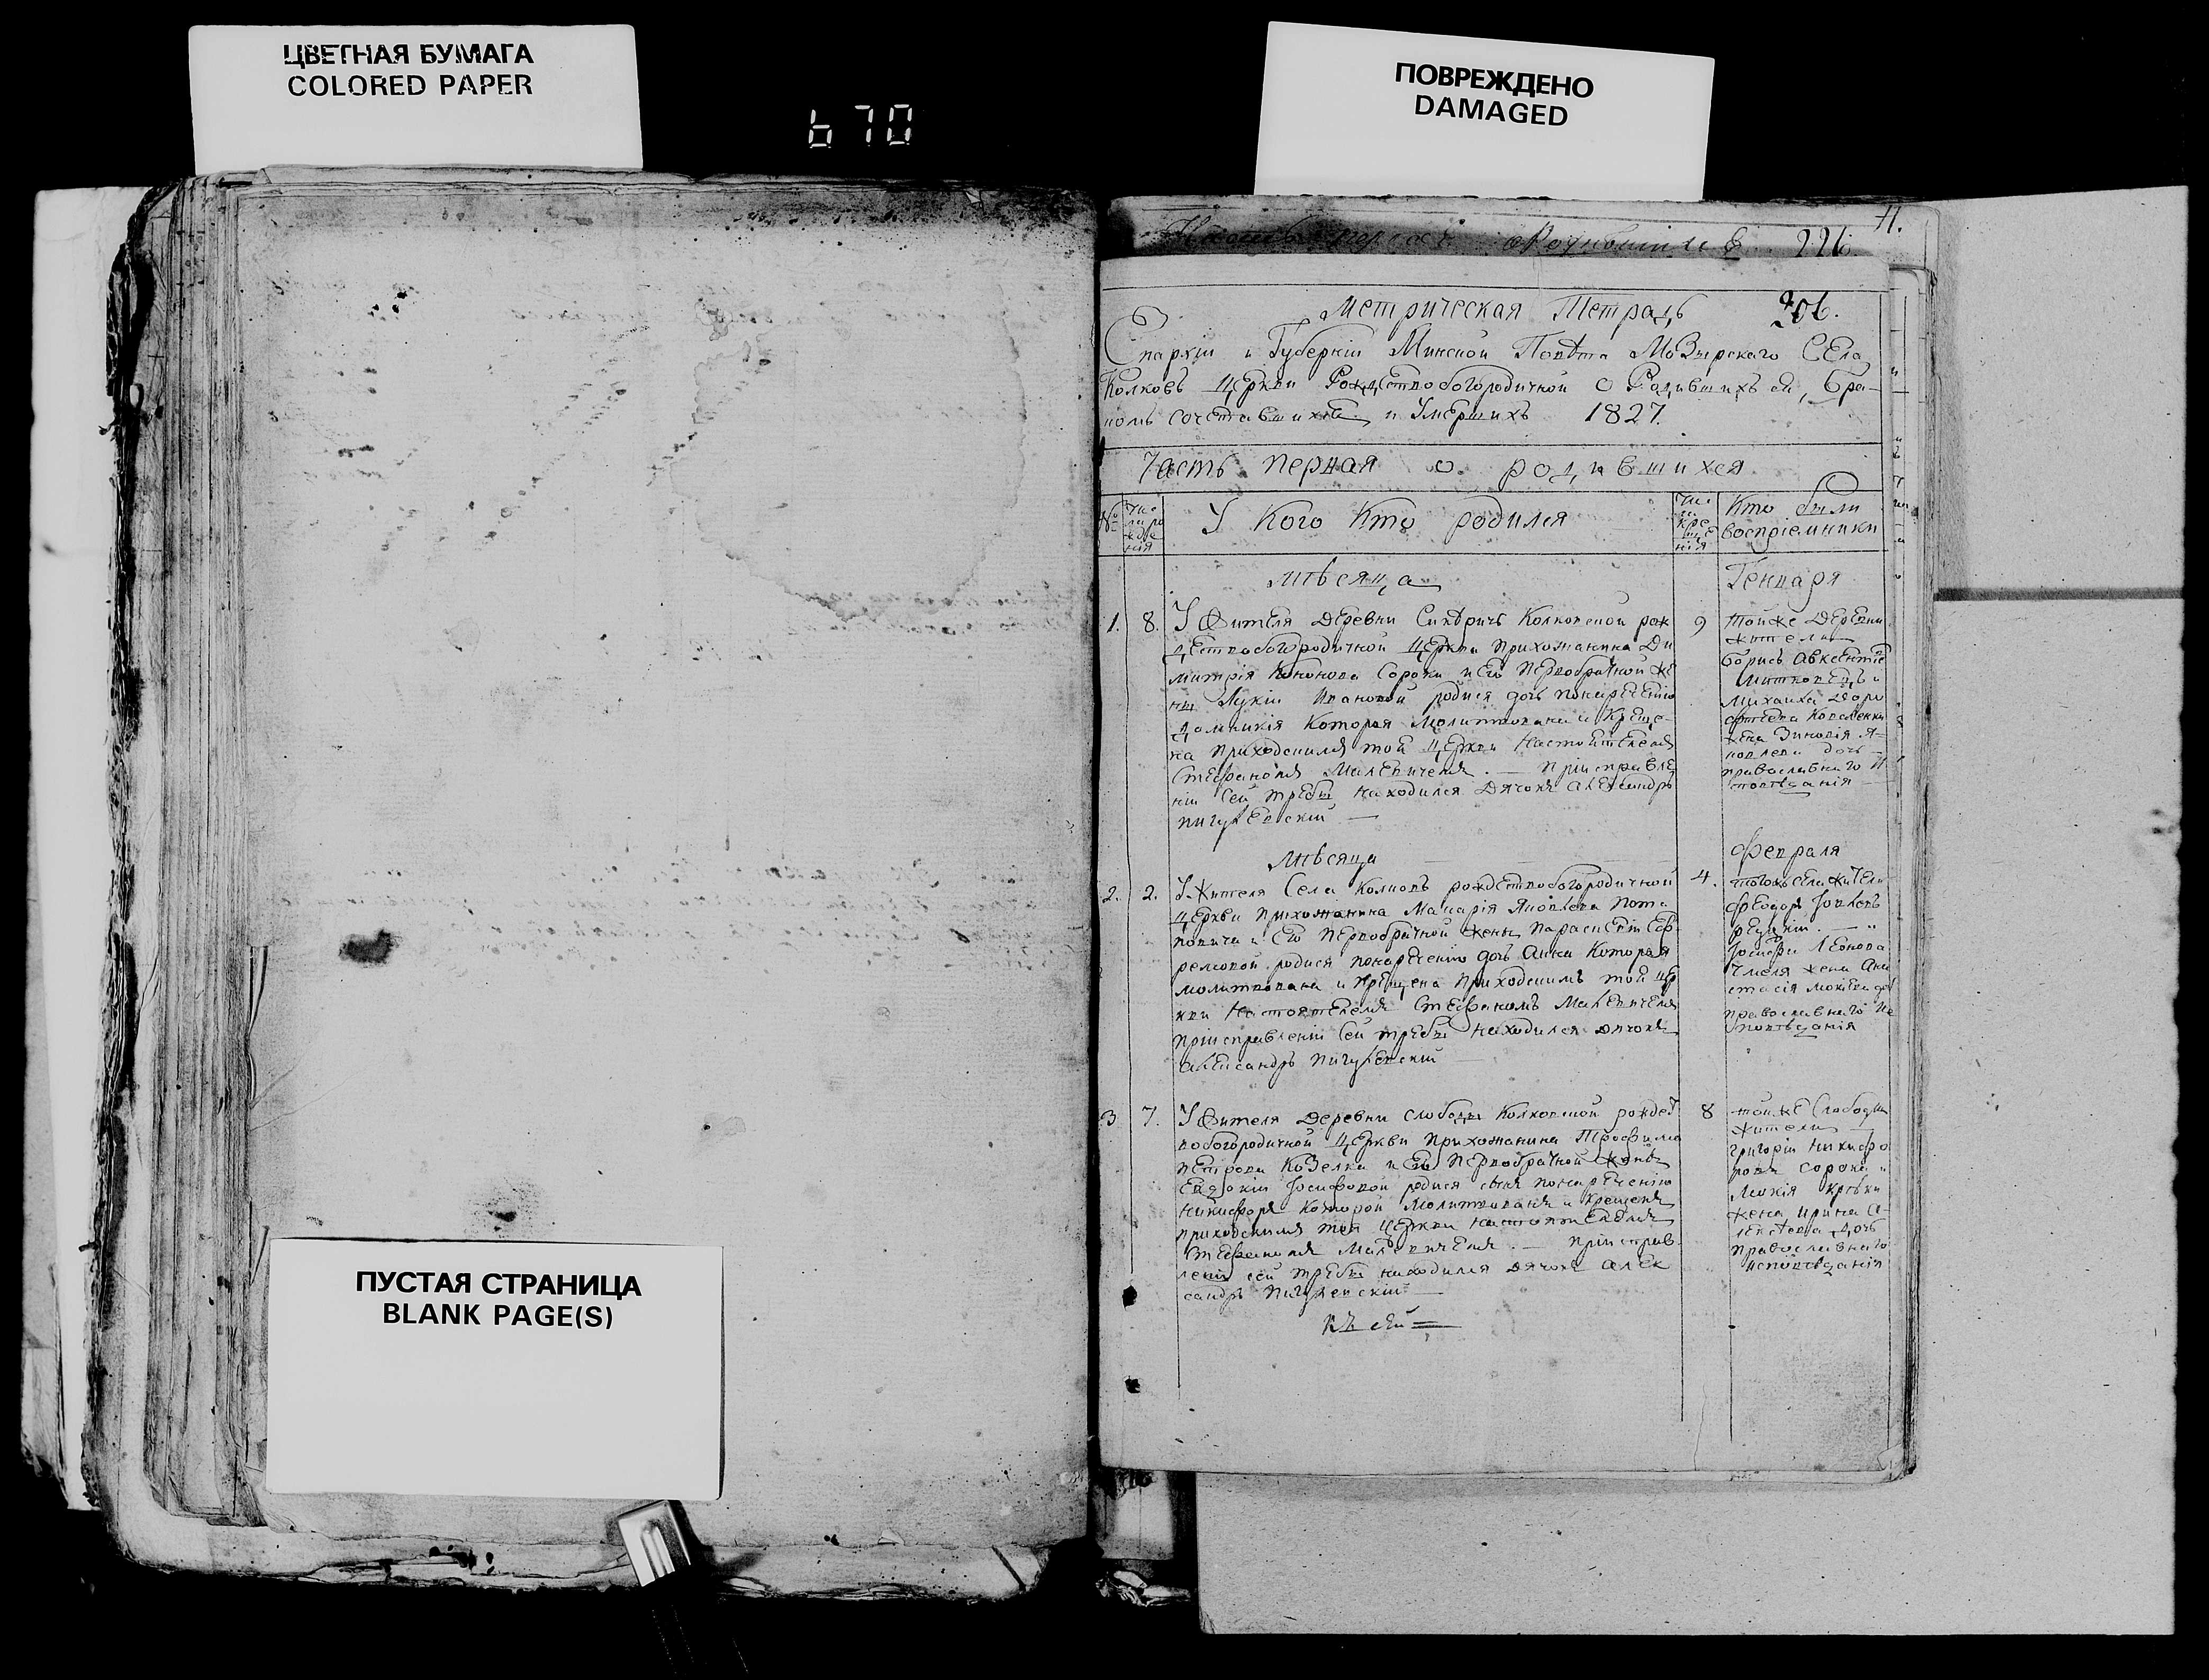 ЦВЕТНАЯ БУМАГА
COLORED PAPER
670
ПОВРЕЖДЕНО
DAMAGED
11.
226
Метрическая Тетрадь 306.
Епархіи и Губерніи Минской Повѣта Мозырскаго Села
Колковъ Церкви Рождествобогородичной о Родившихся, бра-
комъ сочетавшихся и Умершихъ 1827.
Часть первая о родившихся
№ Чис ло ро жде нія
У Кого Кто родился
Чис ло кре ще нія
Кто были
воспріемники
Мѣсяца Генваря
1. 8. У Жителя Деревни Колковской рож
дествобогородичной Церкви Прихожанина Ди
митрія Кононова Сороки и Его Первобрачной же
ны Лукіи Ивановой родися дочь понареченію
Домникія Которая Молитвована и Креще-
на Приходскимъ той Церкви Настоятелемъ
Стефаномъ Малевичемъ. — При справле
ніи Сей требы находился Дячокъ Александръ
Пигулевскій —
9 Тойже Деревни
жители
Борисъ Авксентіе
Михаила
Коваленки
жена Зиновія Я-
ковлева дочь
православнаго И
сповѣданія
Мѣсяца Февраля
2. 2. У Жителя Села Колковъ рождествобогородичной
Церкви Прихожанина Макарія Яковлева Пота
повича и Его Первобрачной жены Параскевіи Еф
ремовой родися понареченію дочь Анна Которая
молитвована и крещена Приходскимъ той Цер
кви Настоятелемъ Стефаномъ Малевичемъ
При справленіи Сей требы находился дячокъ
Александръ Пигулевскій
4. тогожъ села жители
Феодоръ Іовлевъ
Іосифа Леонова
жена Ана
стасія
православнаго Ис
повѣданія
3 7. У Жителя Деревни Слободы Колковской рождест
вобогородичной Церкви Прихожанина Трофима
Петрова Козелка и Его Первобрачной жены
Евдокіи Іосифовой родися сынъ понареченію
Никифоръ Которой Молитвованъ и крещенъ
приходскимъ той Церкви настоятелемъ
Стефаномъ Малевичемъ. — При справ
леніи сей требы находился дячокъ Алек
сандръ Пигулевскій —
8 тойже Слободы
жители
Григорій Никифо
ровъ Сорока
жена Ирина А-
лексѣева дочь
Православнаго
исповѣданія
ПУСТАЯ СТРАНИЦА
BLANK PAGE(S)